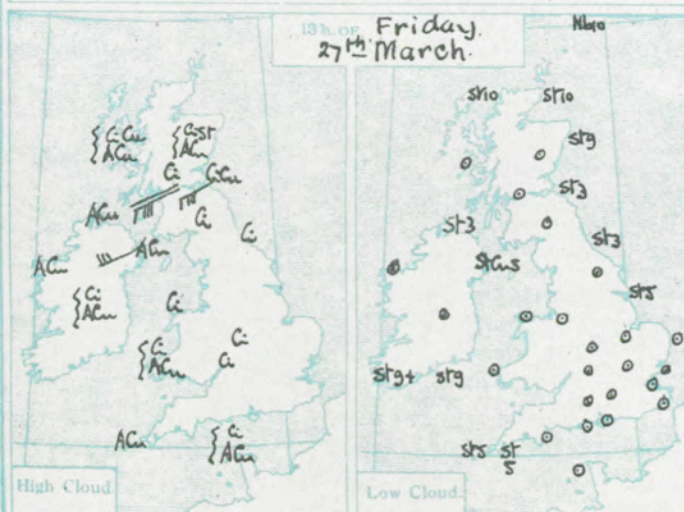 13h. OF Friday.
27th March.
Nb10
St10 St10
{Ci-Cu
ACu
{Ci-St
ACu
Ci CiCu
ACu
Ci
Ci
ACu
ACu
{Ci
ACu
Ci
{Ci
ACu
Ci
Ci
ACu
{Ci
ACu
High Cloud
St9
St3
St3
St3
StCu5
St5
St94 St9
St5 St
5
Low Cloud.